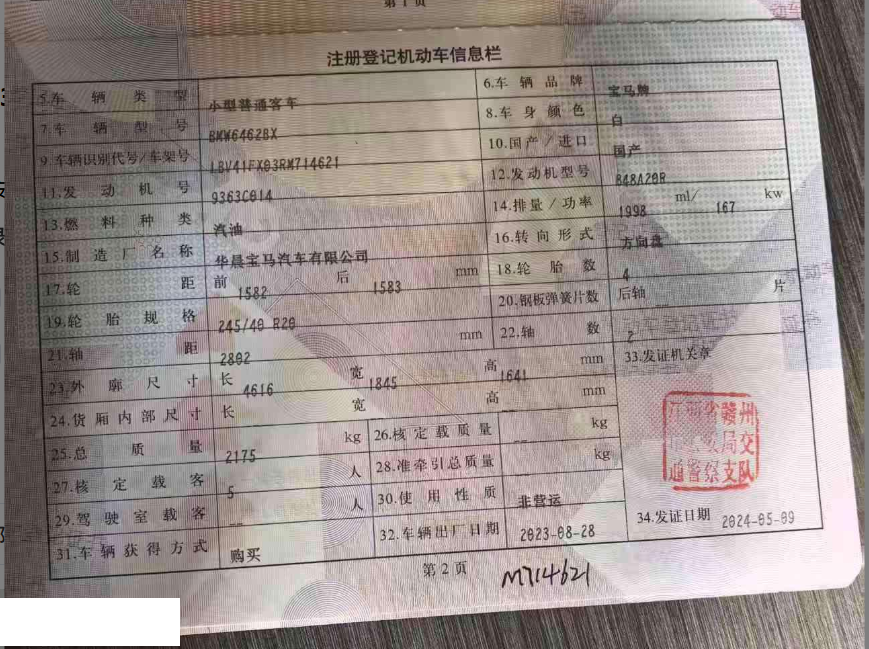 第1页
注册登记机动车信息栏
5.车辆类型 小型普通客车 6.车辆品牌 宝马牌
7.车辆型号 BMW6462BX 8.车身颜色 白
9.车辆识别代号/车架号 LBV41FX03RM714621 10.国产/进口 国产
11.发动机号 9363C014 12.发动机型号 B48A20R
13.燃料种类 汽油 14.排量/功率 1998 ml/ 167 kw
15.制造厂名称 华晨宝马汽车有限公司 16.转向形式 方向盘
17.轮距 前 1582 后 1583 mm 18.轮胎数 4
19.轮胎规格 245/40 R20 20.钢板弹簧片数 后轴 片
21.轴距 2802 mm 22.轴数 2
23.外廓尺寸 长 4616 宽 1845 高 1641 mm 33.发证机关章
24.货厢内部尺寸 长 宽 高 -- mm
25.总质量 2175 kg 26.核定载质量 -- kg
27.核定载客 5 人 28.准牵引总质量 kg
29.驾驶室载客 -- 人 30.使用性质 非营运
31.车辆获得方式 购买 32.车辆出厂日期 2023-08-28 34.发证日期 2024-05-09
省赣州
局交
通警察支队
第2页
M714621